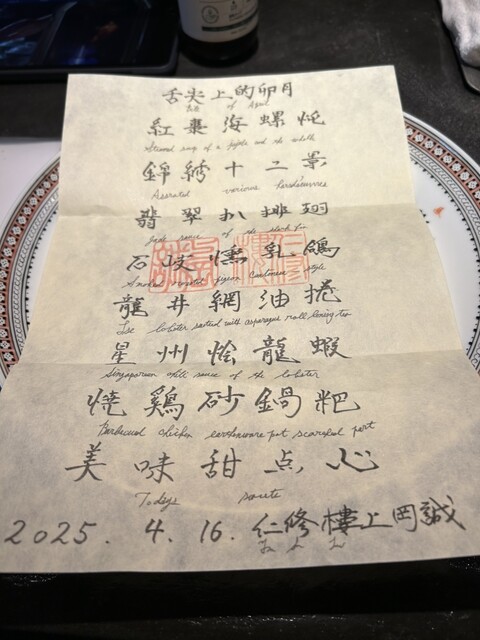 舌尖上的卯月
of April
紅棗海螺炖
Steamed soup of a jujube and the whelk
錦綉十二景
Assorted various Horsdoeuvres
翡翠扒排翅
Jade sauce of the shark fin
石岐燻乳鴿
Smoked roasted pigeon Cantonese style
龍井網油捲
lobster with asparagus roll
星州燴龍蝦
Singaporean chili sauce of the lobster
焼鶏砂鍋粑
Barbecued chicken earthenware pot part
美味甜点心
Todays sweets
2025. 4. 16. 仁修樓上岡誠